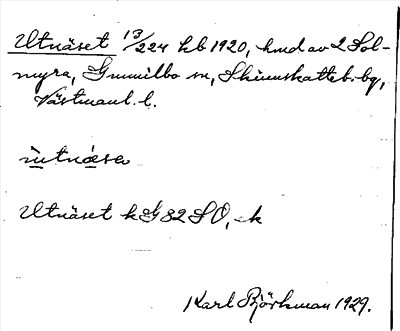 Utnäset 13/224 hb 1920, hmd av 2 Sol-
myra, Gunnilbo sn, Skinnskatteb. bg,
Västmanl. l.
ùtnä̀sea
Utnäset k G 82 SO, ek
Karl Björkman 1929.